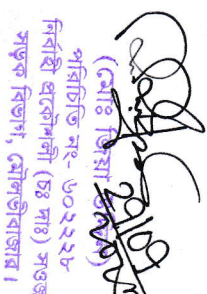 29/09
(মোঃ জিয়া
পরিচিতি নং- ৬০২২২৮
নির্বাহী প্রকৌশলী (চঃ দাঃ) সওজ
সড়ক বিভাগ, মৌলভীবাজার।